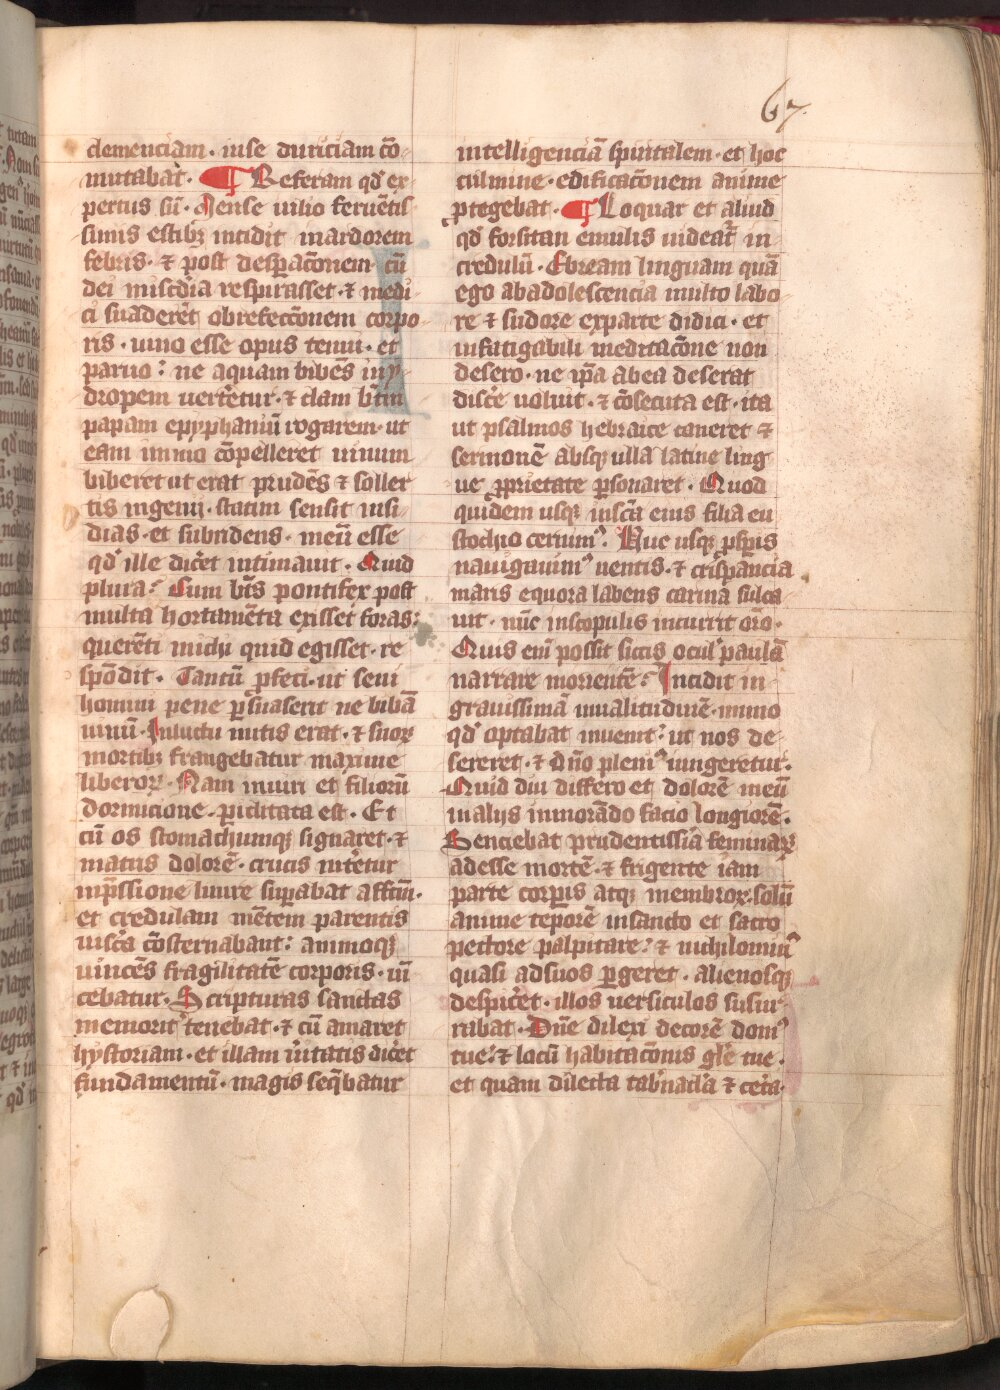 67
clemenciam · in se duriciam cō-
mutabat · ¶ Referam qd' ex-
pertus sū · Mense iulio feruētis-
simis estibꝫ incidit in ardorem
febris · ⁊ post despacōnem cū
dei miscdia respirasset · ⁊ medi-
ci suaderēt ob refeccōnem corpo-
ris · uino esse opus tenui · et
paruo : ne aquam bibēs in y-
dropem uerteretur · ⁊ clam btm
papam epyphaniū rogarem · ut
eam immo cōpelleret uinum
bibere ut erat prudēs ⁊ soller-
tis ingenij · statim sensit insi-
dias · et subridens · meū esse
qd' ille dicēt intimauit · Quid
plura : Cum bts pontifex post
multa hortamēta exisset foras :
querēti michi quid egisset · re-
spōdit · Tantū pfeci · ut seni
homini pene psuaserit ne bibā
uinū · In luctu mitis erat · ⁊ suoꝝ
mortibꝫ frangebatur maxime
liberoꝝ · Nam in uiri et filiorū
dormicione · piclitata est · Et
cū os stomachumqꝫ signaret · ⁊
matris dolorē · crucis niteretur
inpssione lenire supabat affctū ·
et credulam mētem parentis
uiscera cōsternabant : animoqꝫ
uincēs fragilitatē corporis · uī-
cebatur · Scripturas sanctas
memorit' tenebat · ⁊ cū amaret
hystoriam · et illam uitatis dicēt
fundamentū · magis seqbatur
intelligenciā spiritalem · et hoc
culmine · edificacōnem anime
ptegebat · ¶ Loquar et aliud
qd' forsitan emulis uideat' in-
credulū · Ebream linguam quā
ego ab adolescencia multo labo-
re ⁊ sudore ex parte didici · et
infatigabili meditacōne non
desero · ne ipa a bea deserat
discē uoluit · ⁊ cōsecuta est · ita
ut psalmos hebraice caneret ⁊
sermonē absqꝫ ulla latine ling-
ue pprietate psonaret · Quod
quidem usqꝫ in scā eius filia eu-
stochio cernim9 · Huc usqꝫ pspis
nauigauim9 uentis · ⁊ crispancia
maris equora labens carina sulca-
uit · nūc in scopulis incurrit oro ·
Quis em possit siccis ocul' paulā
narrare morientē : Incidit in
grauissimā inualitudinē · immo
qd' optabat inuenit : ut nos de-
sereret · ⁊ dno pleni9 iungeretur ·
Quid diu differo et dolorē meū
in alijs inmorādo facio longiorē ·
Senciebat prudentissia feminaꝝ
adesse mortē · ⁊ frigente iam
parte corpis atqꝫ membroꝝ · solū
anime teporē in sancto et sacro
pectore palpitare : ⁊ nichilomin9
quasi ad suos pgeret · alienosqꝫ
despicēt · illos uersiculos susur-
rabat · Dne dilexi decorē dom9
tue : ⁊ locū habitacōnis glē tue ·
et quam dilecta tab'nacla ⁊ cetā ·